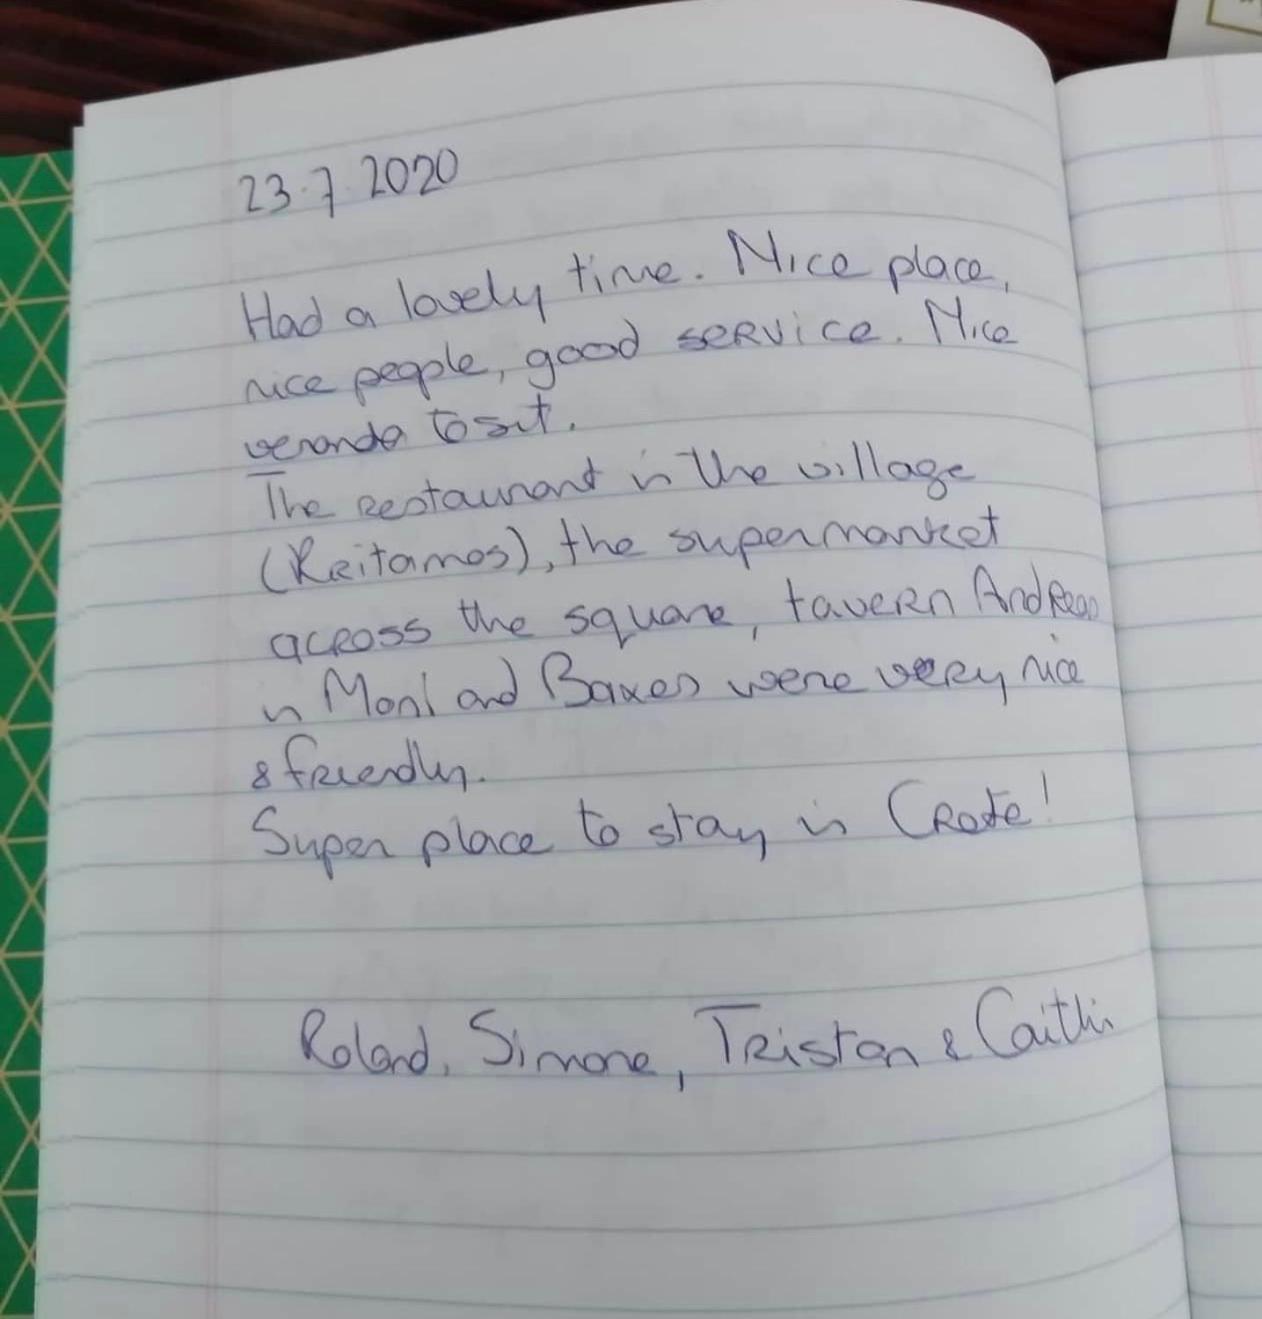 23.7.2020
Had a lovely time. Nice place,
nice people, good service. Nice
veranda to sit.
The restaurant in the village
(Kritamos), the supermarket
across the square, tavern Andreas
in Moni and Baxes were very nice
& friendly.
Super place to stay in Crete!
Roland, Simone, Tristan & Caitlin